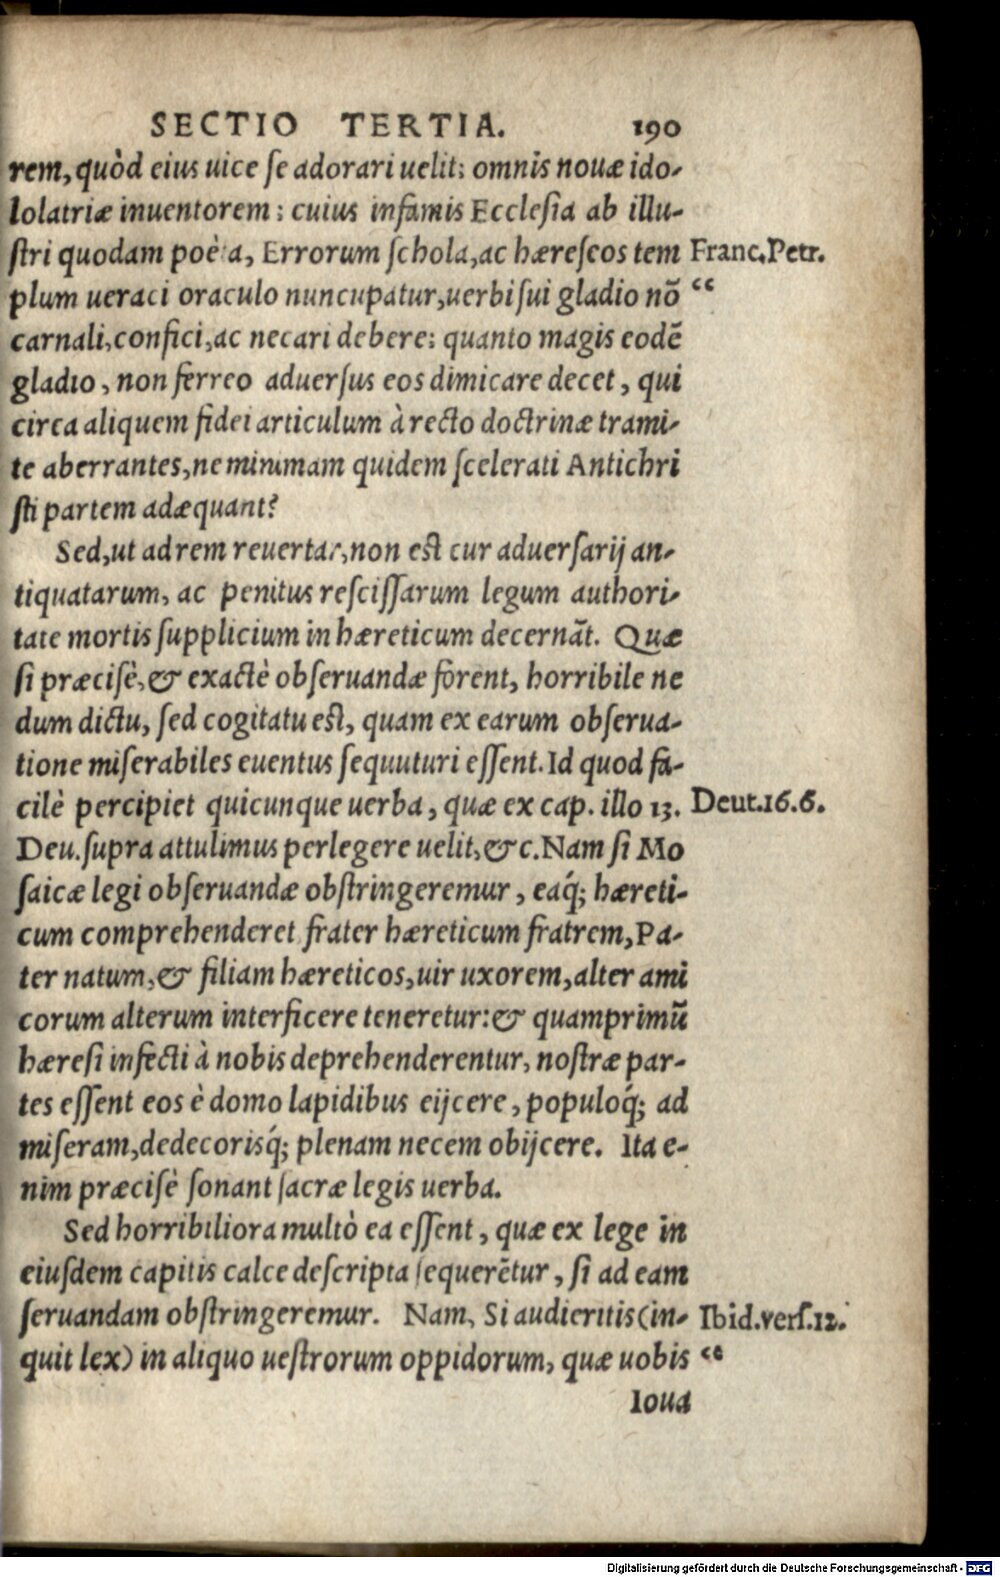 SECTIO TERTIA. 190
rem, quòd eius uice se adorari uelit: omnis nouæ ido-
lolatriæ inuentorem: cuius infamis Ecclesia ab illu-
stri quodam poëta, Errorum schola, ac hæreseos tem Franc. Petr.
plum ueraci oraculo nuncupatur, uerbi sui gladio nõ “
carnali, confici, ac necari debere: quanto magis eodẽ
gladio, non ferreo aduersus eos dimicare decet, qui
circa aliquem fidei articulum à recto doctrinæ trami-
te aberrantes, ne minimam quidem scelerati Antichri
sti partem adæquant?
Sed, ut ad rem reuertar, non est cur aduersarij an-
tiquatarum, ac penitus rescissarum legum authori-
tate mortis supplicium in hæreticum decernãt. Quæ
si præcisè, & exactè obseruandæ forent, horribile ne
dum dictu, sed cogitatu est, quam ex earum obserua-
tione miserabiles euentus sequuturi essent. Id quod fa-
cilè percipiet quicunque uerba, quæ ex cap. illo 13. Deut. 16. 6.
Deu. supra attulimus perlegere uelit, &c. Nam si Mo
saicæ legi obseruandæ obstringeremur, eaq́; hæreti-
cum comprehenderet frater hæreticum fratrem, Pa-
ter natum, & filiam hæreticos, uir uxorem, alter ami
corum alterum interficere teneretur: & quamprimũ
hæresi infecti à nobis deprehenderentur, nostræ par-
tes essent eos è domo lapidibus eijcere, populoq́; ad
miseram, dedecorisq́; plenam necem obijcere. Ita e-
nim præcisè sonant sacræ legis uerba.
Sed horribiliora multò ea essent, quæ ex lege in
eiusdem capitis calce descripta sequerẽtur, si ad eam
seruandam obstringeremur. Nam, Si audieritis (in- Ibid. vers. 12.
quit lex) in aliquo uestrorum oppidorum, quæ uobis “
Ioua
Digitalisierung gefördert durch die Deutsche Forschungsgemeinschaft - DFG